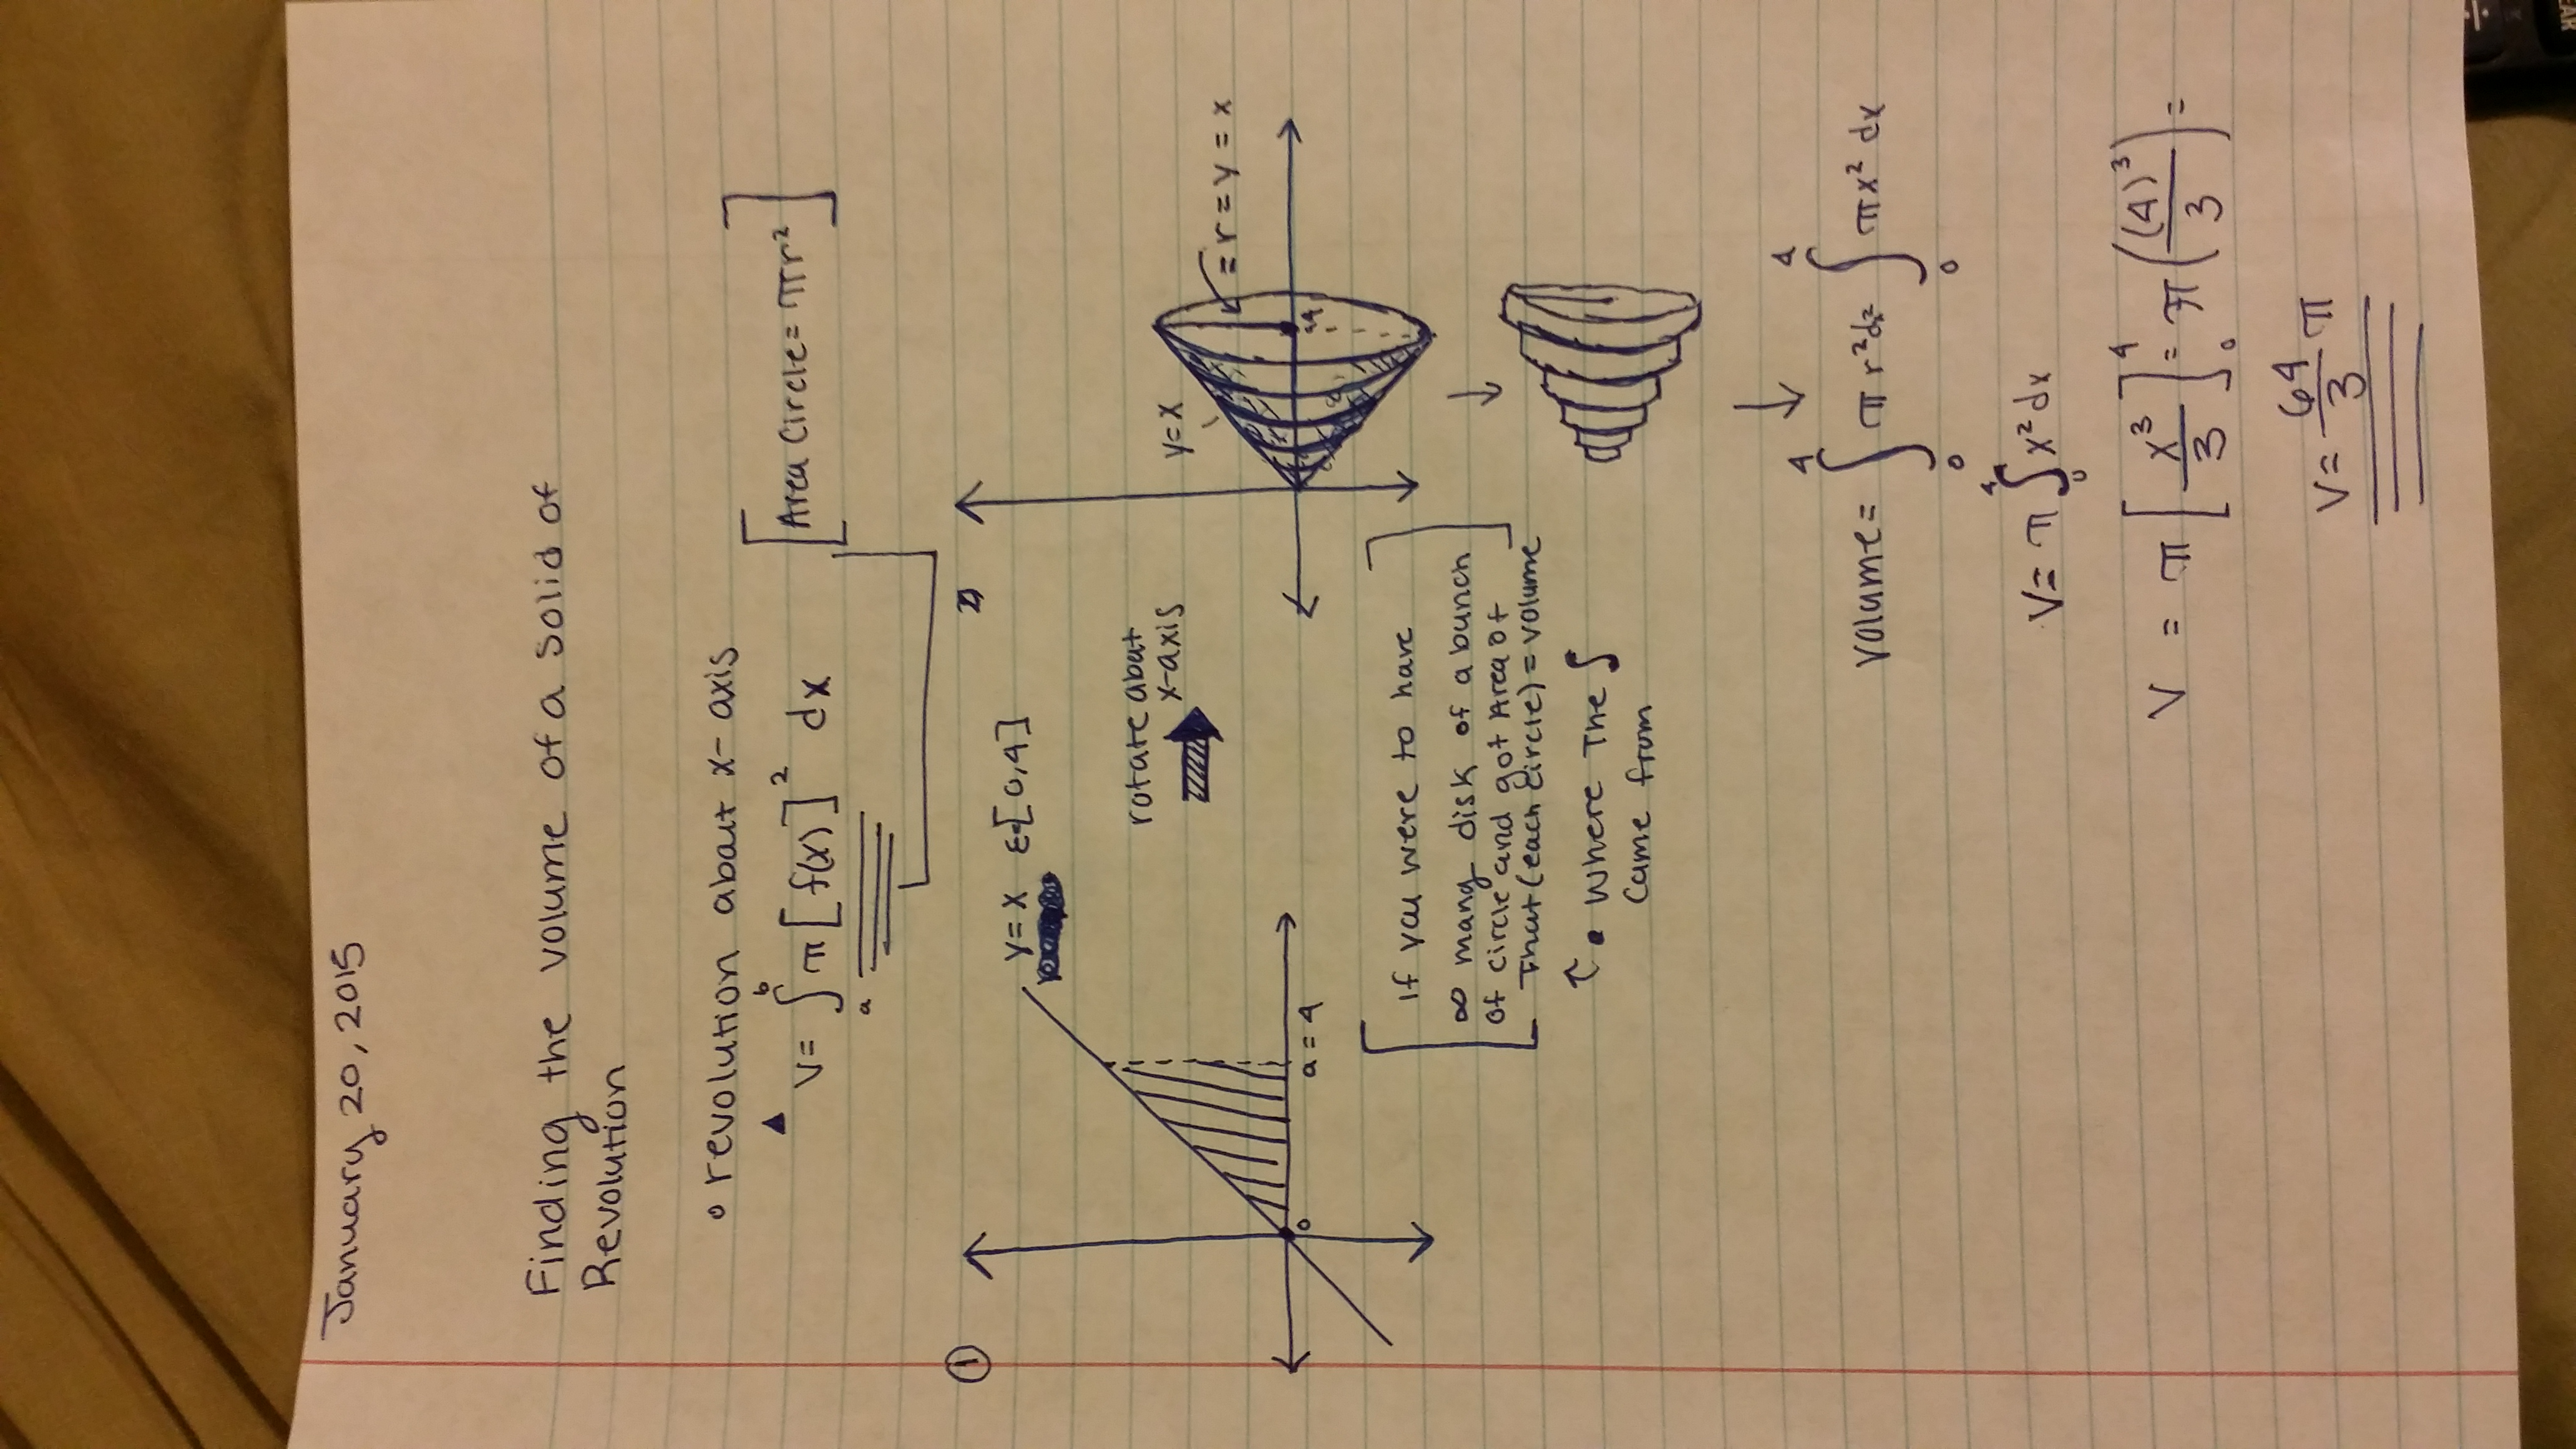 January 20, 2015
Finding the volume of a solid of
Revolution
• revolution about x-axis
▲ V = ∫ₐᵇ π [f(x)]² dx [Area Circle = πr²]
① y = x ε[0,4]
2)
rotate about
x-axis
y=x
= r = y = x
4
0
a = 4
[If you were to have
∞ many disk of a bunch
of circle and got Area of
That (each circle) = volume]
↑ • where The ∫
came from
volume = ∫₀⁴ π r² dx ∫₀⁴ πx² dx
V = π ∫₀⁴ x² dx
V = π [x³/3]₀⁴ = π((4)³/3) =
V = 64/3 π